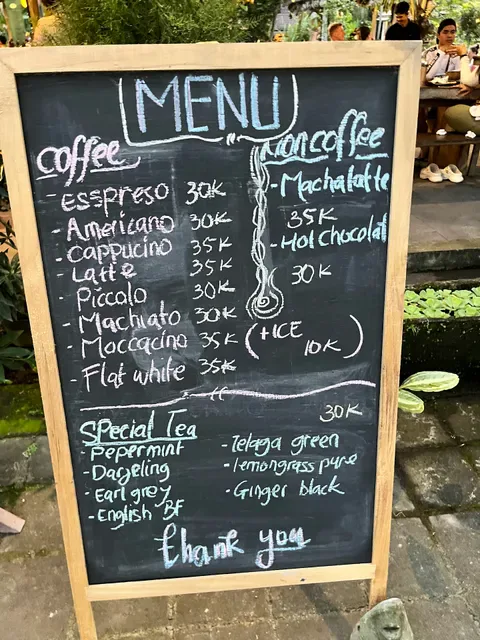 MENU
Coffee
- Esspreso 30K
- Americano 30K
- Cappucino 35K
- Latte 35K
- Piccolo 30K
- Machiato 30K
- Moccacino 35K
- Flat white 35K
Noncoffee
- Machalatte
35K
- Hot Chocolat
30K
(+ICE
10K)
30K
Special Tea
- Pepermint
- Darjeling
- Earl grey
- English BF
- Telaga green
- lemongrass pure
- Ginger black
thank you